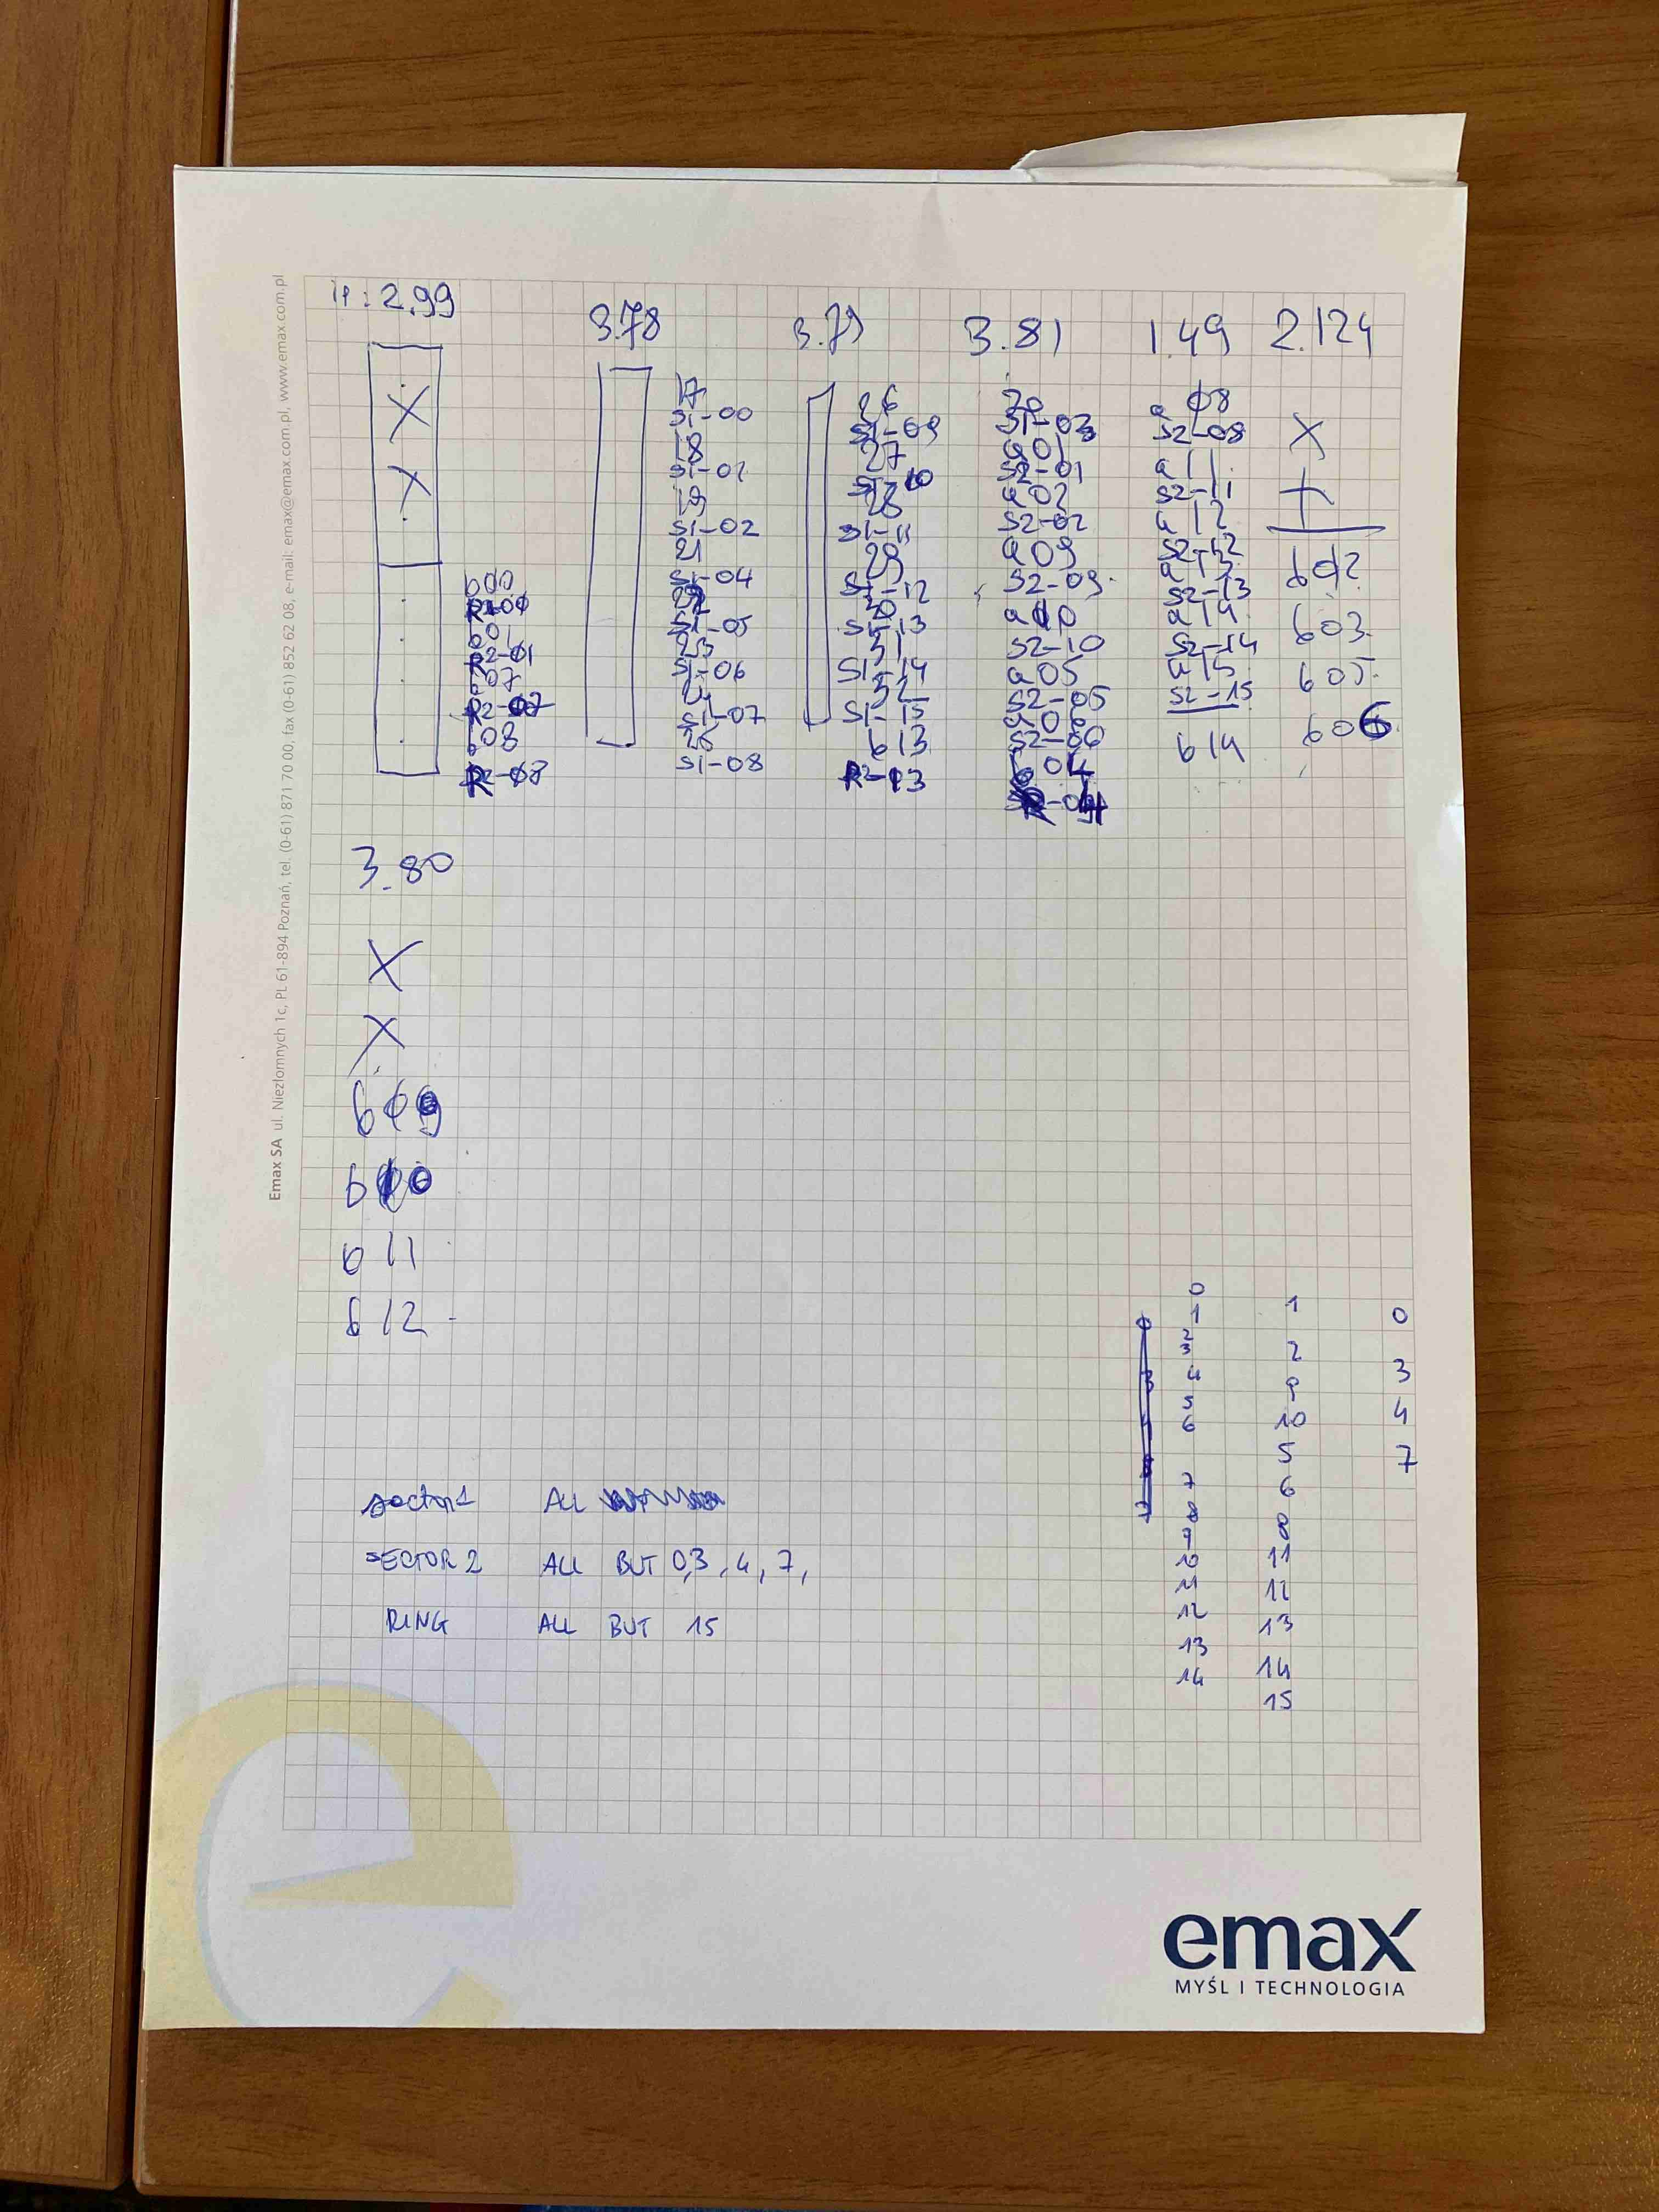 IP: 2.99
3.78
3.79
3.81
1.49
2.124
X
X
b00
R2-00
b01
R2-01
b07
R2-07
b08
R2-08
17
S1-00
18
S1-01
19
S1-02
21
S1-04
22
S1-05
23
S1-06
S1-07
25
S1-08
26
S1-09
27
S1-10
28
S1-11
29
S1-12
30
S1-13
31
S1-14
32
S1-15
b13
R2-13
20
S1-03
a01
S2-01
a02
S2-02
a09
S2-09
a10
S2-10
a05
S2-05
a06
S2-06
b04
R-04
a08
S2-08
a11
S2-11
a12
S2-12
a13
S2-13
a14
S2-14
a15
S2-15
b14
X
b02
b03
b05
b06
3.80
X
X
b09
b10
b11
b12
sector1 ALL
SECTOR 2 ALL BUT 0,3,4,7,
RING ALL BUT 15
0
1
2
3
4
5
6
7
8
9
10
11
12
13
14
1
2
9
10
5
6
8
11
12
13
14
15
0
3
4
7
Emax SA ul. Niezłomnych 1c, PL 61-894 Poznań, tel. (0-61) 871 70 00, fax (0-61) 852 62 08, e-mail: emax@emax.com.pl, www.emax.com.pl
emax
MYŚL I TECHNOLOGIA